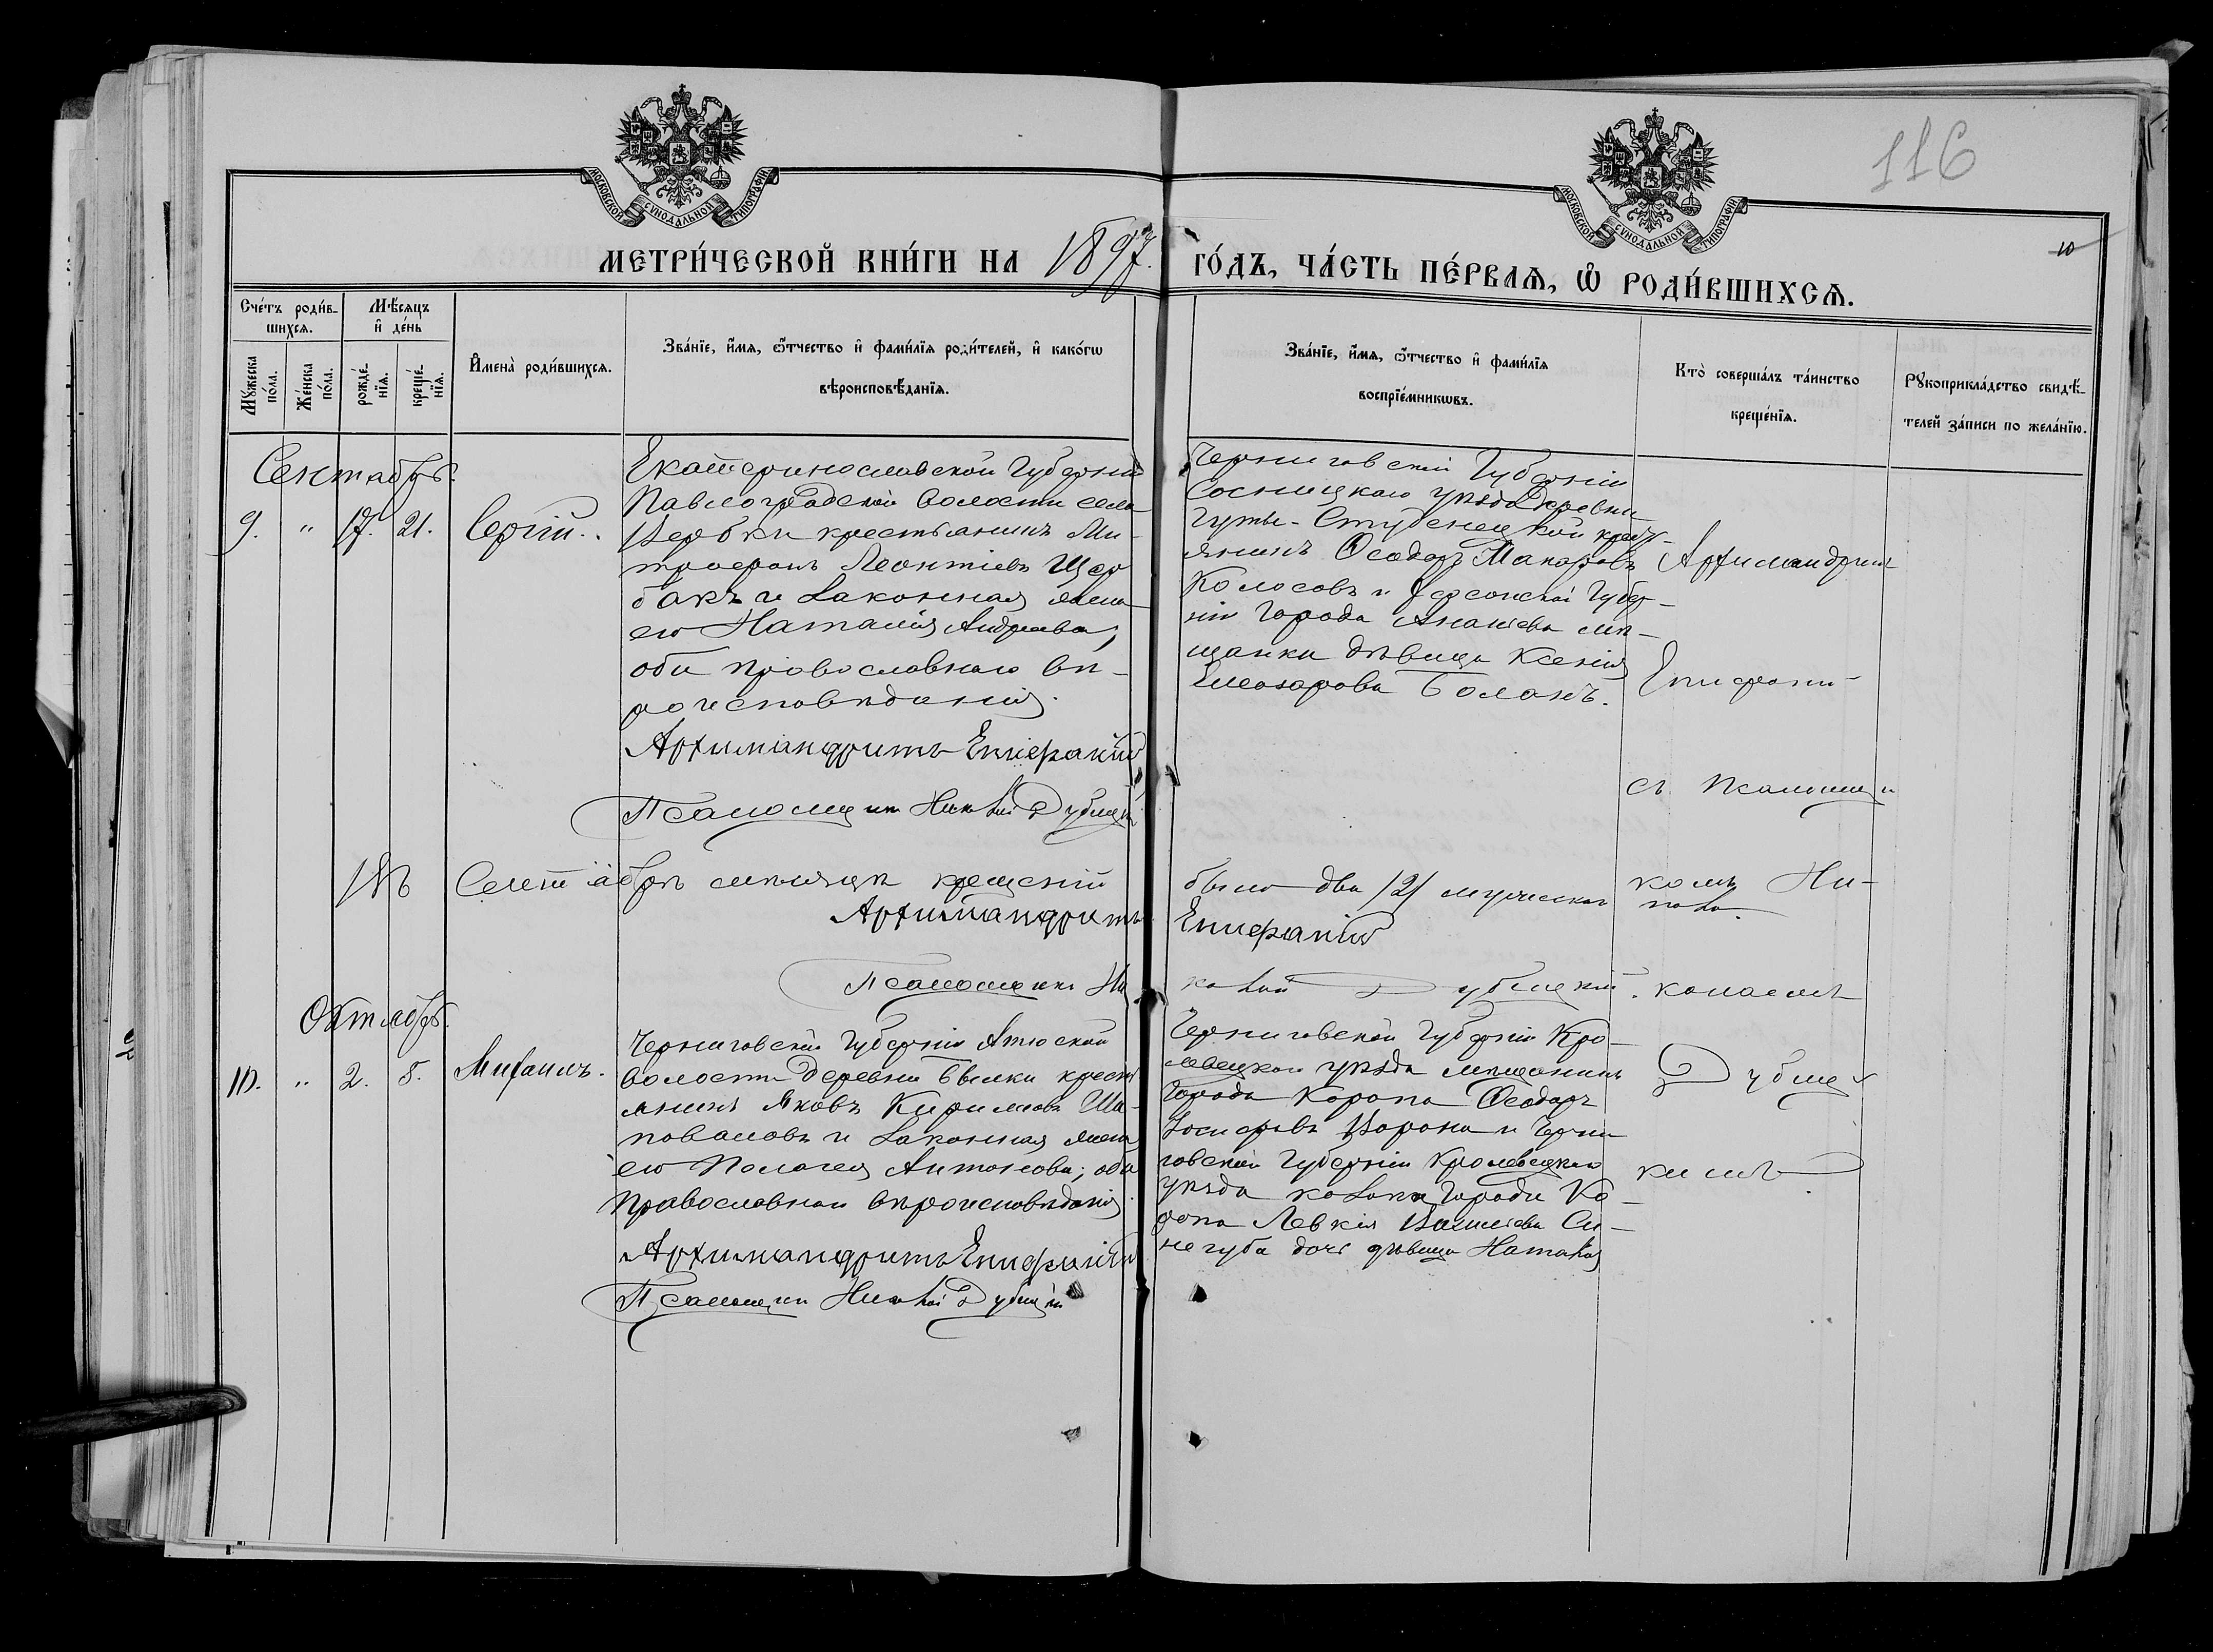 116
10
МОСКОВСКОЙ СУНОДАЛЬНОЙ ТИПОГРАФІИ
МОСКОВСКОЙ СУНОДАЛЬНОЙ ТИПОГРАФІИ
МЕТРИ́ЧЕСКОЙ КНИ́ГИ НА 1897. ГО́ДЪ, ЧА́СТЬ ПЕ́РВАѦ, Ѡ҆ РОДИ́ВШИХСѦ.
Сче́тъ роди́в-
шихсѧ.
Мѣ́сѧцъ
и҆ де́нь
Мꙋ́жеска
по́ла.
Же́нска
по́ла.
рожде́-
нїѧ.
креще́-
нїѧ.
И҆мена̀ роди́вшихсѧ.
Зва́нїе, и҆́мѧ, ѻ҆́тчество и҆ фами́лїѧ роди́телей, и҆ како́гѡ
вѣроисповѣ́данїѧ.
Зва́нїе, и҆́мѧ, ѻ҆́тчество и҆ фами́лїѧ
воспрїе́мникѡвъ.
Кто̀ соверша́лъ та́инство
креще́нїѧ.
Рꙋкоприкла́дство свидѣ́-
телей за́писи по жела́нїю.
Сентябрь.
9. " 17. 21. Сергій.
Екатеринославской Губерніи
Павлоградской волости села
Вербки крестьянинъ Ми-
трофанъ Леонтіевъ Щер
бакъ и законная жена
его Наталія Андреева,
оба православнаго вѣ-
роисповѣданія.
Архимандритъ Епифаній
Псаломщикъ Никола Дубицкій
Черниговской Губерніи
Сосницкаго уѣзда деревни
Гуты-Студенецкой кресть-
янинъ Ѳеодоръ Макаровъ
Колосовъ и Херсонской Губер-
ніи города Ананьева мѣ-
щанки дѣвица Ксенія
Елеазарова Боланъ.
Архимандритъ
Епифаній
съ Псаломщи
комъ Ни-
колаемъ
Дубиц
кимъ.
Въ Сентябрѣ мѣсяцѣ крещеній было два /2/ мужескаго
Архимандритъ Епифаній
Псаломщикъ Николай Дубицкій.
Октябрь.
10. " 2. 5. Михаилъ.
Черниговской Губерніи Атюской
волости деревни Бѣлки кресть
янинъ Яковъ Кириловъ Ша-
поваловъ и законная жена
его Пелагея Антонова; оба
православнаго вѣроисповѣданія
Архимандритъ Епифаній
Псаломщикъ Николай Дубицкій
Черниговской Губерніи Кро-
левецкаго уѣзда мѣщанинъ
города Коропа Ѳеодоръ
Іосифовъ Ворона и Черни
говской Губерніи Кролевецкаго
уѣзда козака города Ко-
ропа Левкія Василіева Си-
негуба дочь дѣвица Наталія